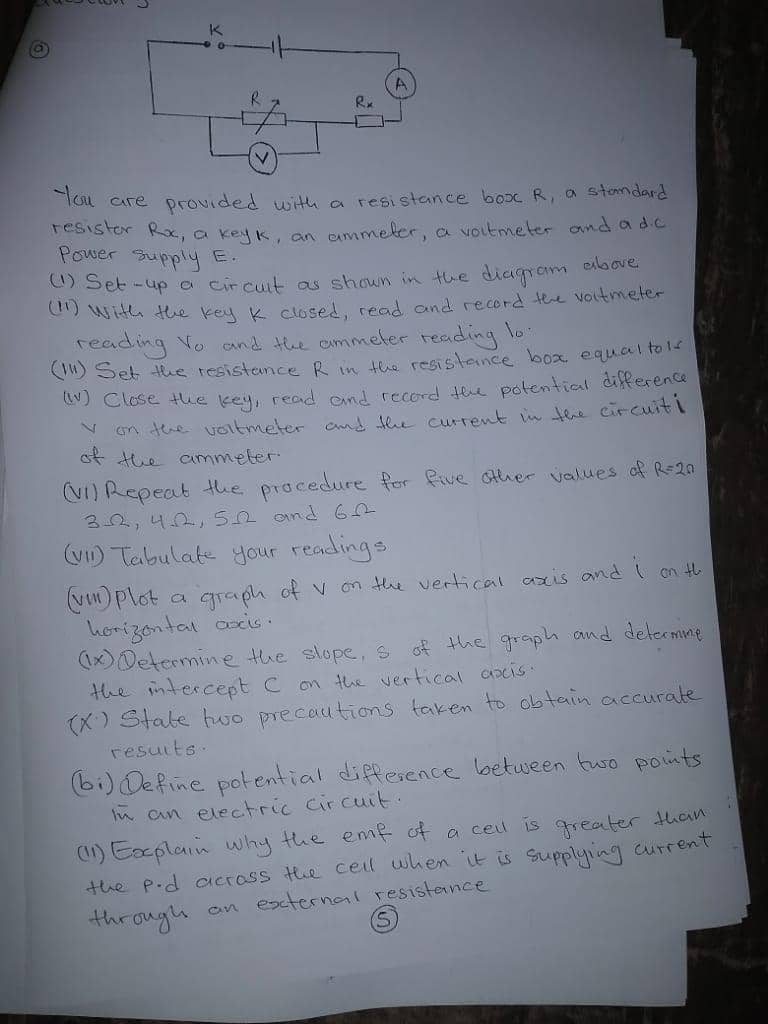 (a)
K
A
R
Rx
V
You are provided with a resistance box R, a standard
resistor Rx, a key K, an ammeter, a voltmeter and a d.c
Power supply E.
(I) Set-up a circuit as shown in the diagram above
(II) With the key K closed, read and record the voltmeter
reading Vo and the ammeter reading Io.
(III) Set the resistance R in the resistance box equal to 1
(IV) Close the key, read and record the potential difference
V on the voltmeter and the current in the circuit i
of the ammeter.
(VI) Repeat the procedure for five other values of R=2Ω
3Ω, 4Ω, 5Ω and 6Ω
(VII) Tabulate your readings
(VIII) Plot a graph of V on the vertical axis and i on th
horizontal axis.
(IX) Determine the slope, s of the graph and determine
the intercept C on the vertical axis.
(X) State two precautions taken to obtain accurate
results.
(bi) Define potential difference between two points
in an electric circuit.
(II) Explain why the emf of a cell is greater than
the p.d across the cell when it is supplying current
through an external resistance
(5)